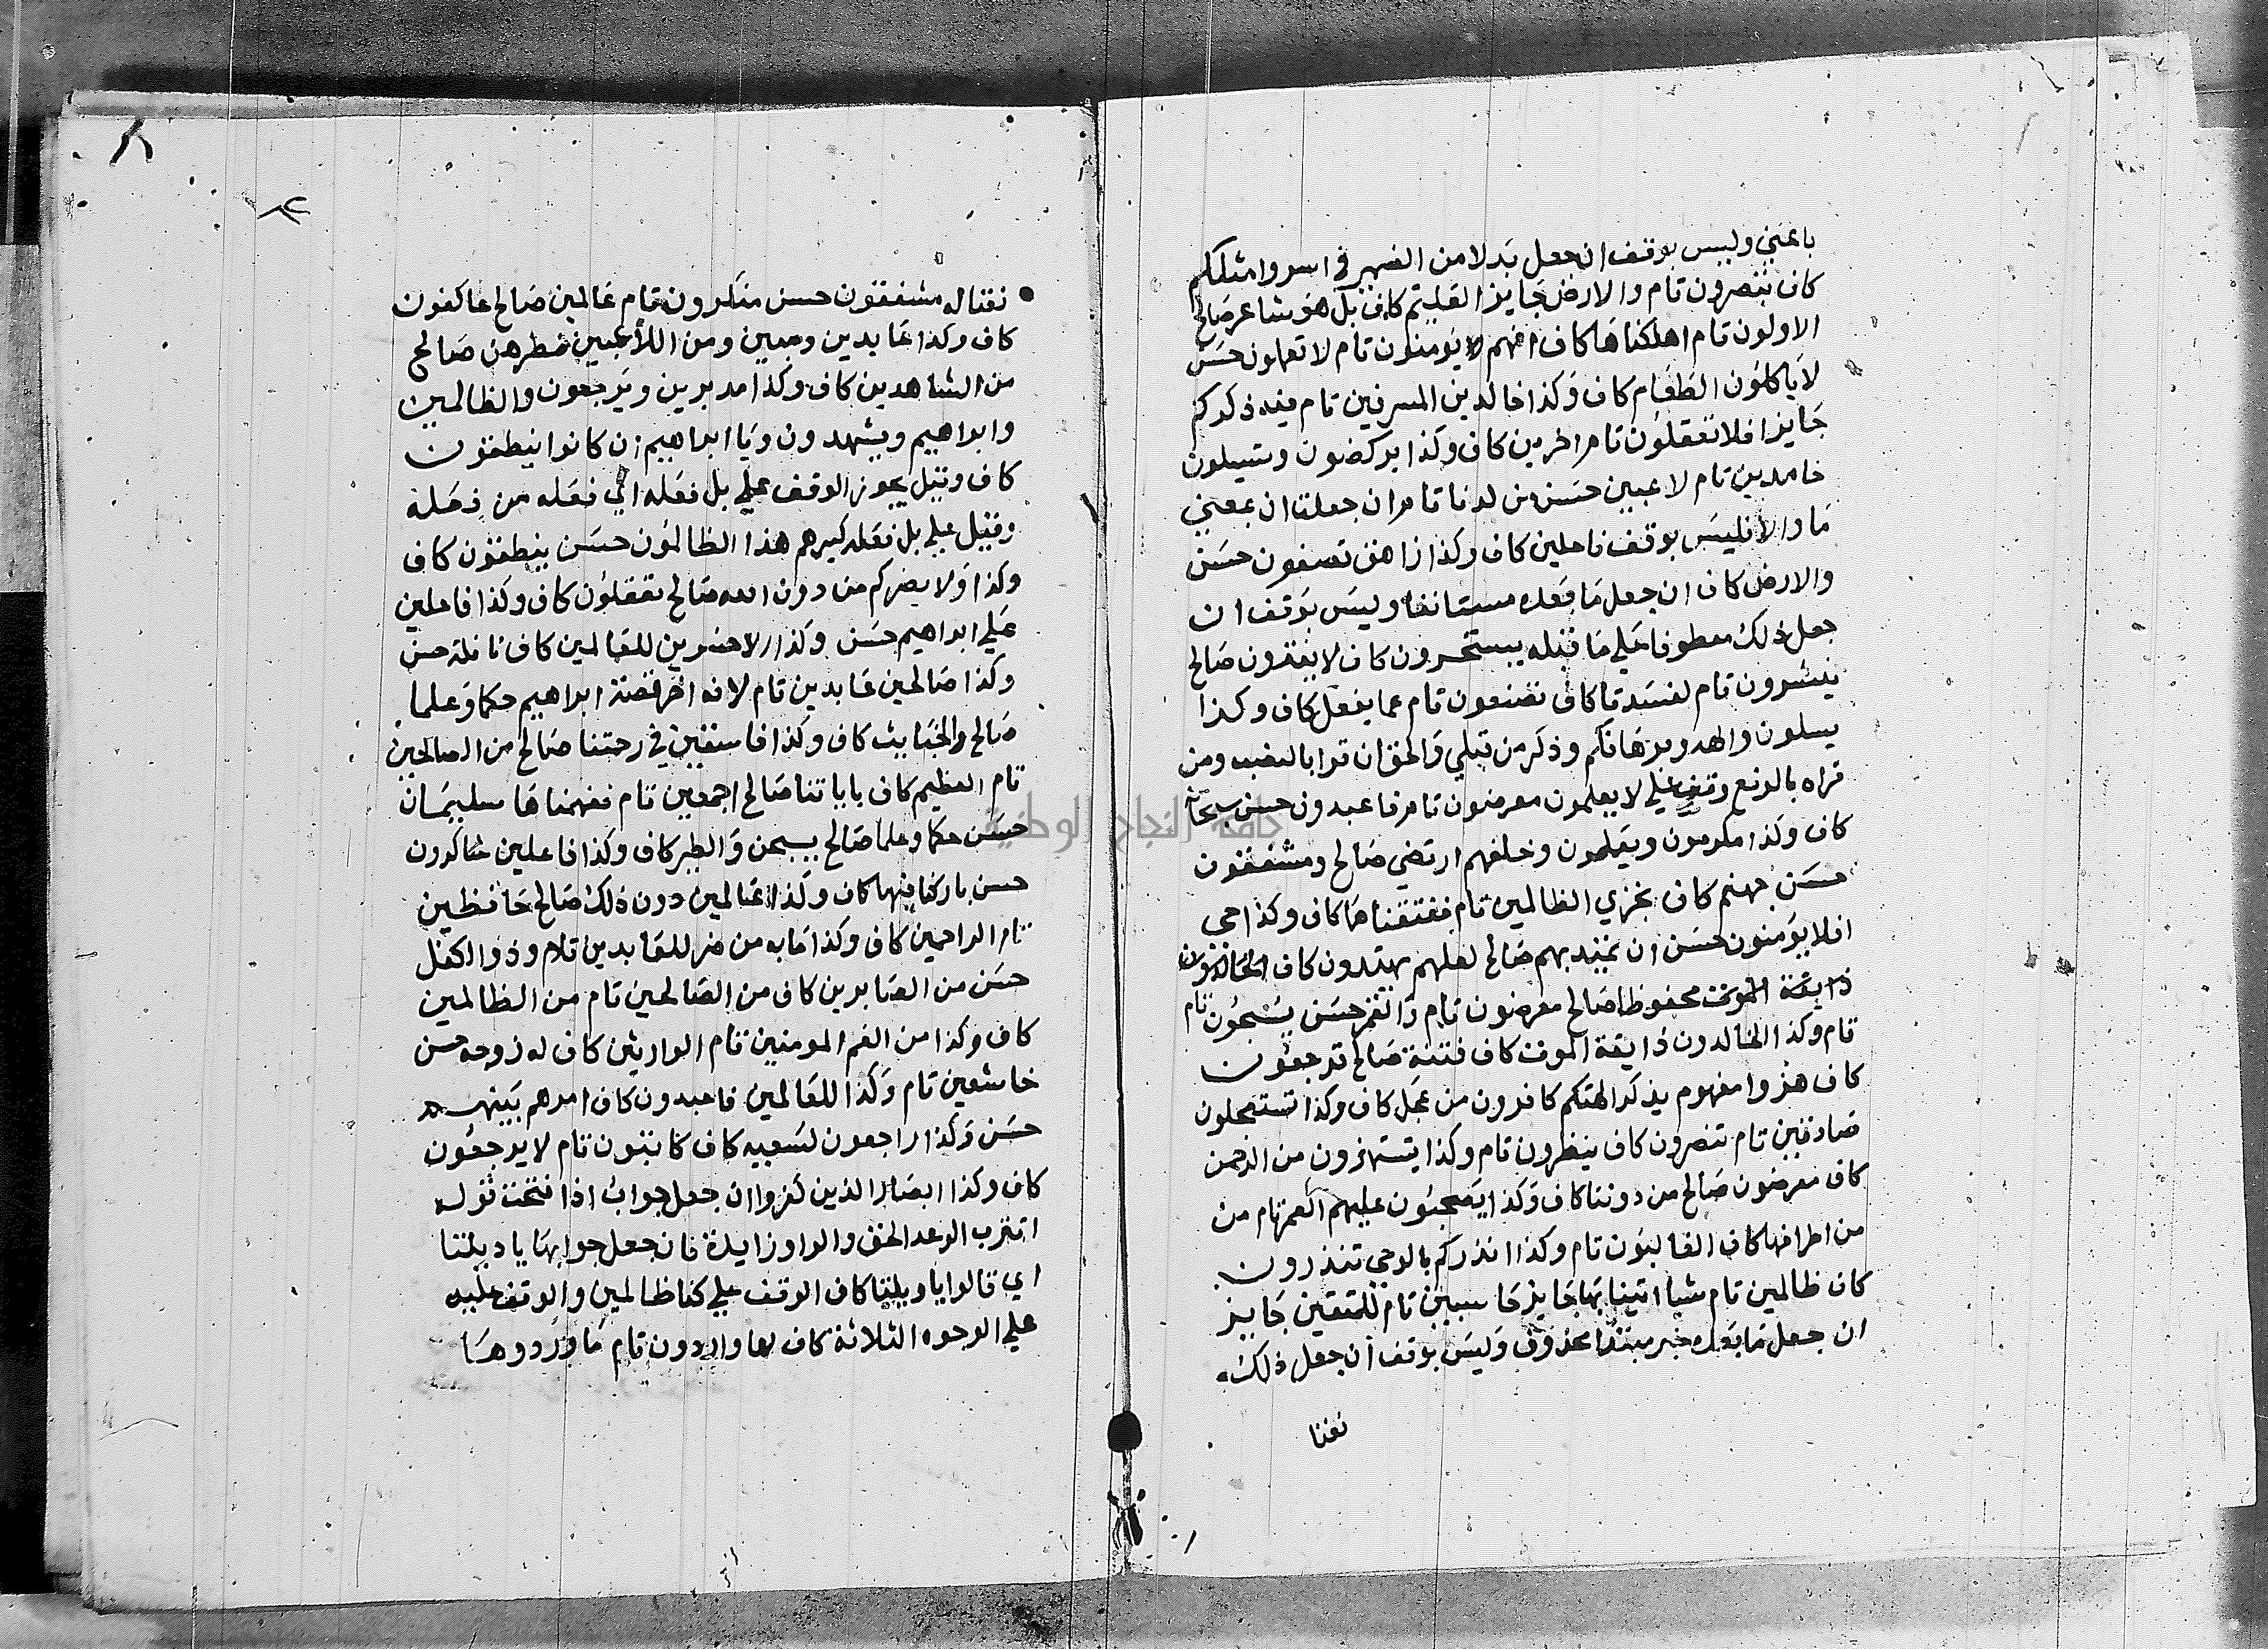 باعني وليس بوقف ان جعل بدلا من الضمير في اسروا مثلكم
كاف تبصرون تام والارض جايز العليم كاف بل هو شاعر صالح
الاولون تام اهلكناها كاف افهم لا يومنون تام لا تعلمون حسن
لا ياكلون الطعام كاف وكذا خالدين المسرفين تام فيه ذكركم
جايز افلا تعقلون تام اخرين كاف وكذا يركضون وتسيلون
خامدين تام لاعبين حسن من لدنا تام ان جعلت ان بمعني
ما والا فليس بوقف فاعلين كاف وكذا زاهق تصفون حسن
والارض كاف ان جعل ما بعده مستانفا وليس بوقف ان
جعل ذلك معطوفا علي ما قبله يستحسرون كاف لا يفترون صالح
ينشرون تام لفسدتا كاف تصنعون تام عما يفعل كاف وكذا
يسلون والهه وبرهانكم وذكر من قبلي والحق ان قرا بالنصب ومن
قراه بالرفع وقف علي لا يعلمون معرضون تام فاعبدون حسن سبحانه
كاف وكذا مكرمون ويعلمون وخلفهم ارتضي صالح ومشفقون
حسن جهنم كاف نجزي الظالمين تام ففتقناهما كاف وكذا حي
افلا يومنون حسن ان تميد بهم صالح لعلهم يهتدون كاف الخالدون
ذايقة الموت محفوظا صالح معرضون تام والقمر حسن يسبحون تام
تام وكذا الخالدون ذايقة الموت كاف فتنة صالح ترجعون
كاف هزوا مفهوم يذكر الهتكم كافرون من عجل كاف وكذا تستعجلون
صادقين تام تنصرون كاف ينظرون تام وكذا يستهزون من الرحمن
كاف معرضون صالح من دوننا كاف وكذا يصحبون عليهم العمر تام من
من اطرافها كاف الغالبون تام وكذا انذركم بالوحي تنذرون
كاف ظالمين تام شيا اتينا بها جايز حاسبين تام للمتقين جايز
ان جعل ما بعده خبر مبتدا محذوف وليس بوقف ان جعل ذلك
نعتا
نعتا له مشفقون حسن منكرون تام عالمين صالح عاكفون
كاف وكذا عابدين ومبين ومن اللاعبين فطرهن صالح
من الشاهدين كاف وكذا مدبرين ويرجعون والظالمين
وابراهيم ويشهدون ويا ابراهيم ان كانوا ينطقون
كاف وقيل يجوز الوقف علي بل فعله اي فعله من فعله
وقيل علي بل فعله كبيرهم هذا الظالمون حسن ينطقون كاف
وكذا ولا يضركم من دون الله صالح تعقلون كاف وكذا فاعلين
علي ابراهيم حسن وكذا الاخسرين للعالمين كاف نافلة حسن
وكذا صالحين عابدين تام لانه اخر قصة ابراهيم حكما وعلما
صالح والخبايث كاف وكذا فاسقين في رحمتنا صالح من الصالحين
تام العظيم كاف باياتنا صالح اجمعين تام ففهمناها سليمان
حسن حكما وعلما صالح يسبحن والطير كاف وكذا فاعلين شاكرون
حسن باركنا فيها كاف وكذا عالمين دون ذلك صالح حافظين
تام الراحمين كاف وكذا مابه من ضر للعابدين تلام وذوالكفل
حسن من الصابرين كاف من الصالحين تام من الظالمين
كاف وكذا من الغم المومنين تام الوارثين كاف له زوجه حسن
خاشعين تام وكذا للعالمين فاعبدون كاف امرهم بينهم
حسن وكذا راجعون لسعيه كاف كاتبون تام لا يرجعون
كاف وكذا ابصار الذين كفروا ان جعل جواب اذا فتحت قوله
اقترب الوعد الحق والواو زايدة فان جعل جوابها يا ويلنا
اي قالوا يا ويلنا كاف الوقف علي كنا ظالمين والوقف عليه
علي الوجوه الثلاثة كاف لها واردون تام ما وردوها